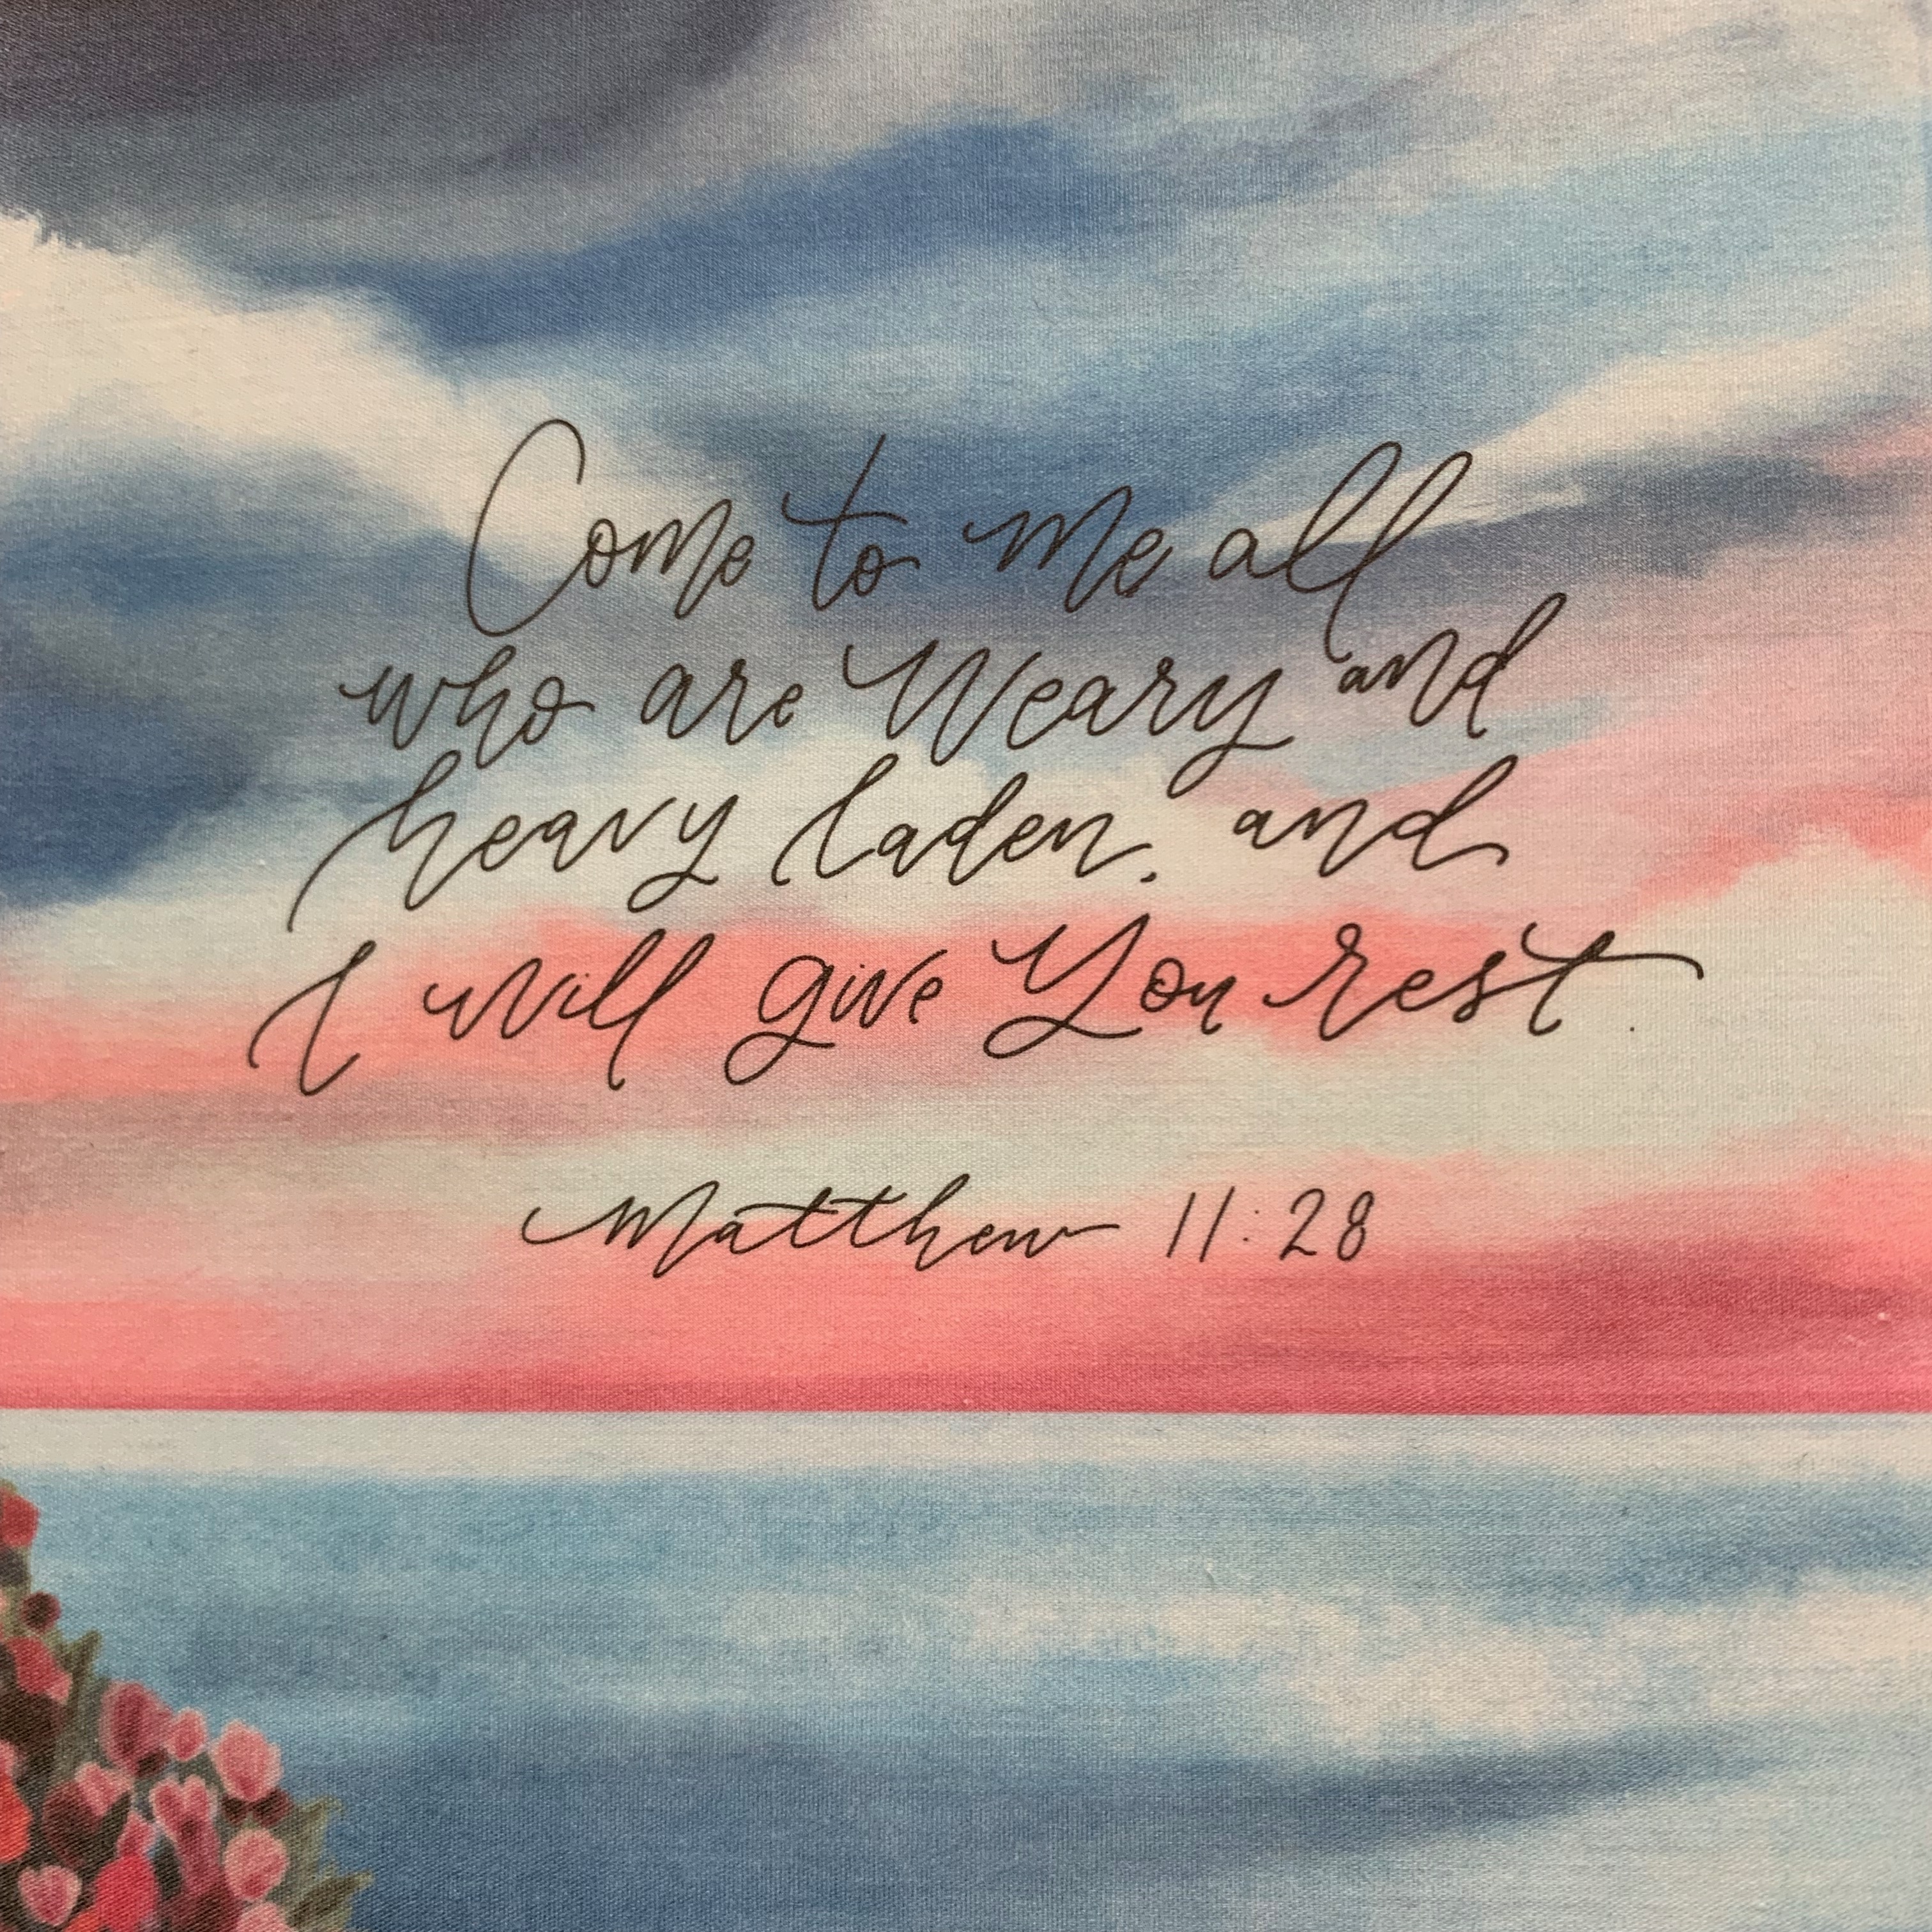 Come to me all
who are Weary and
heavy laden, and
I will give You rest.
Matthew 11:28